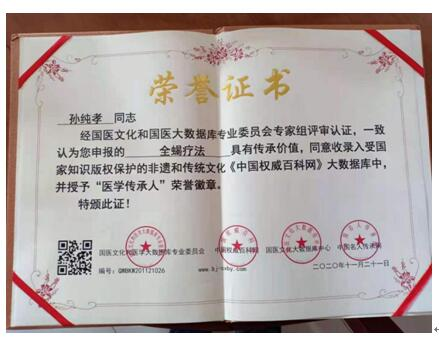 荣誉证书
孙纯孝 同志
经国医文化和国医大数据库专业委员会专家组评审认证，一致
认为您申报的 全蝎疗法 具有传承价值，同意收录入受国
家知识版权保护的非遗和传统文化《中国权威百科网》大数据库中，
并授予“医学传承人”荣誉徽章。
特颁此证！
国医文化和医学大数据库专业委员会 中国权威百科网 国医文化大数据库中心 中国名人传承网
编号：GWBKW201121026
二〇二〇年十一月二十一日